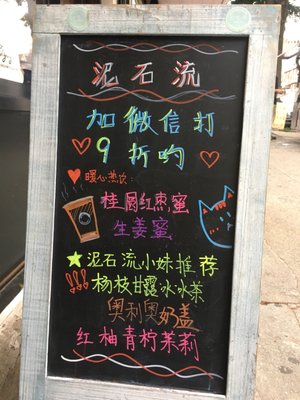 泥石流
加微信打
9折哟
暖心热饮：
桂圆红枣蜜
生姜蜜
★泥石流小妹推荐
!!!杨枝甘露冰冰茶
奥利奥奶盖
红柚青柠茉莉